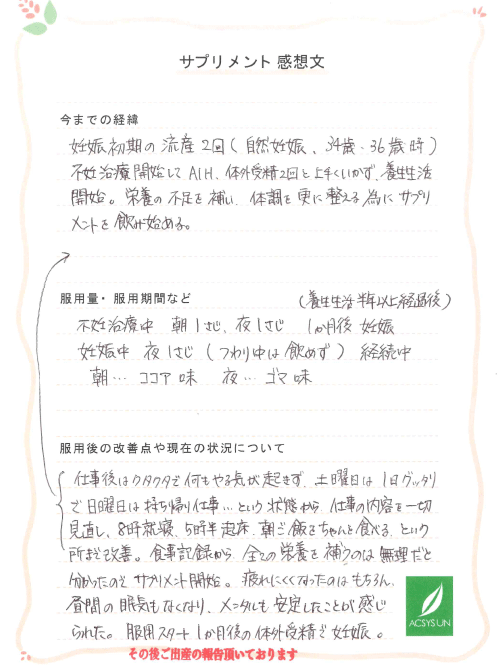 サプリメント 感想文
今までの経緯
妊娠初期の流産2回(自然妊娠、34歳・36歳時)
不妊治療開始してAIH、体外受精2回と上手くいかず、養生生活
開始。栄養の不足を補い、体調を更に整える為にサプリ
メントを飲み始める。
服用量・服用期間など
(養生生活半年以上経過後)
不妊治療中 朝1さじ、夜1さじ 1か月後 妊娠
妊娠中 夜1さじ(つわり中は飲めず)継続中
朝… ココア味 夜… ゴマ味
服用後の改善点や現在の状況について
仕事後はクタクタで何もやる気が起きず、土曜日は1日グッタリ
で日曜日は持ち帰り仕事…という状態から、仕事の内容を一切
見直し、8時就寝、5時半起床、朝ご飯をちゃんと食べる、という
所を改善。食事記録から全ての栄養を補うのは無理だと
分かったのでサプリメント開始。疲れにくくなったのはもちろん、
昼間の眠気もなくなり、メンタルも安定したことが感じ
られた。服用スタート1か月後の体外受精で妊娠。
ACSYSUN
その後ご出産の報告頂いております